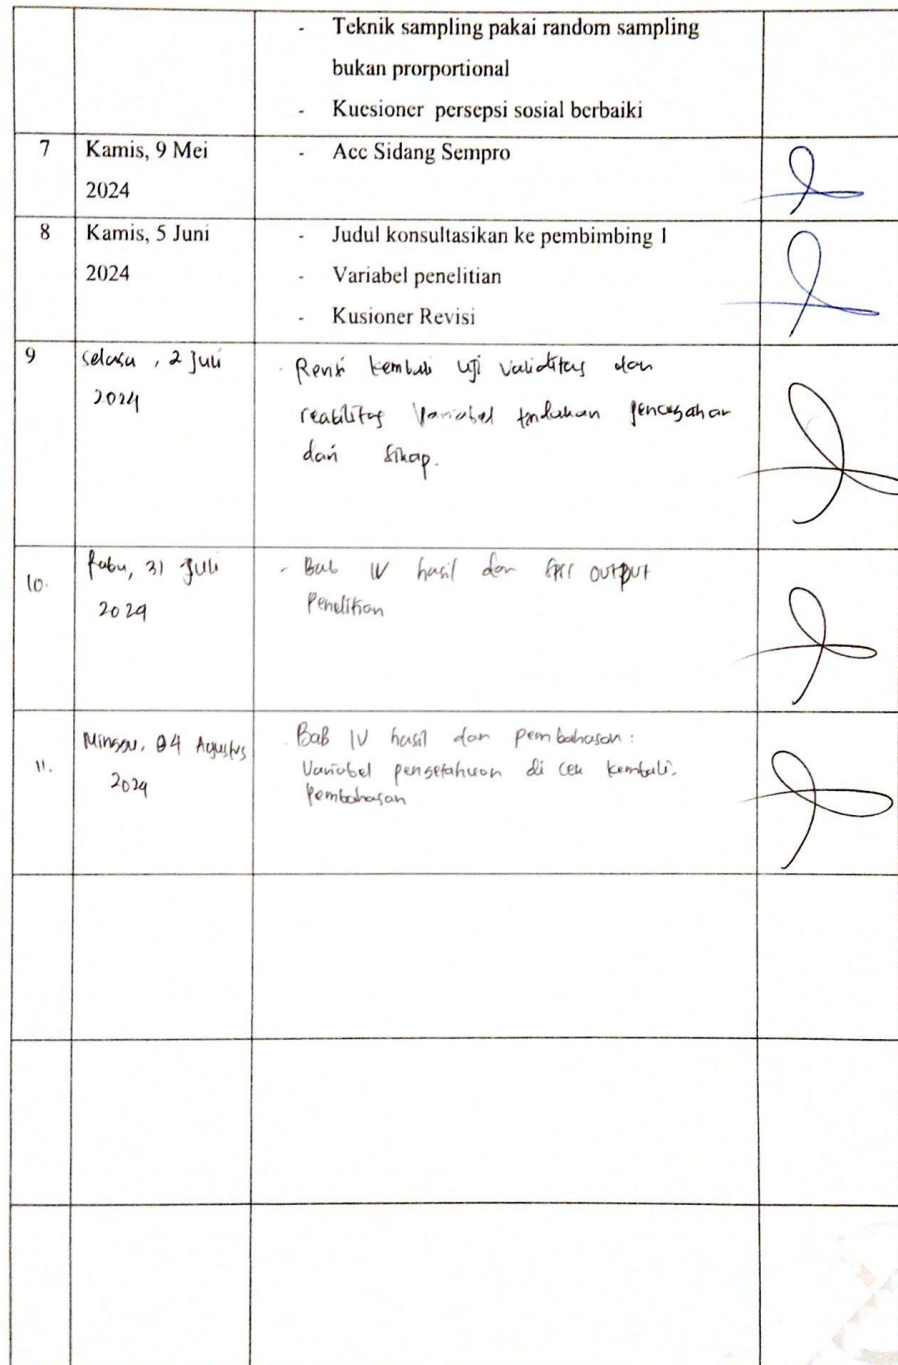 - Teknik sampling pakai random sampling
bukan prorportional
- Kuesioner persepsi sosial berbaiki
7 Kamis, 9 Mei - Acc Sidang Sempro
2024
8 Kamis, 5 Juni - Judul konsultasikan ke pembimbing 1
2024 - Variabel penelitian
- Kusioner Revisi
9 Selasa, 2 Juli - Revisi kembali uji validitas dan
2024 reabilitas Variabel tindakan pencegahan
dari sikap.
10. Rabu, 31 Juli - Bab IV hasil dan SPSS OUTPUT
2024 Penelitian
11. Minggu, 04 Agustus - Bab IV hasil dan pembahasan:
2024 Variabel pengetahuan di cek kembali.
Pembahasan